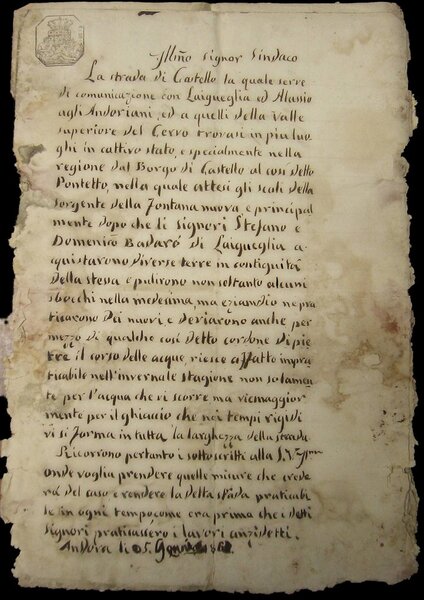 Illmo Signor Sindaco
La strada di Castello la quale serve
di comunicazione con Laigueglia ed Alassio
agli Andoriani, ed a quelli della Valle
superiore del Cervo trovasi in più luo
ghi in cattivo stato, e specialmente nella
regione dal Borgo di Castello al così detto
Pontetto, nella quale attesi gli scoli della
sorgente della Fontana nuova e principal
mente dopo che li Signori Stefano e
Domenico Badarò di Laigueglia a-
quistarono diverse terre in contiguità
della stessa e pulirono non soltanto alcuni
sbocchi nella medesima, ma eziandio ne pra
ticarono dei nuovi e deviarono anche per
mezzo di qualche così detto cordone di pie
tre il corso delle acque, riesce affatto impra
ticabile nell'invernale stagione non solamen
te per l'acqua che vi scorre ma viemaggior
mente per il ghiaccio che nei tempi rigidi
vi si forma in tutta la larghezza della strada
Ricorrono pertanto i sottoscritti alla S. V.
onde voglia prendere quelle misure che crede
rà del caso e rendere la detta strada praticabi
le in ogni tempo, come era prima che i detti
Signori praticassero i lavori anzidetti.
Andora li